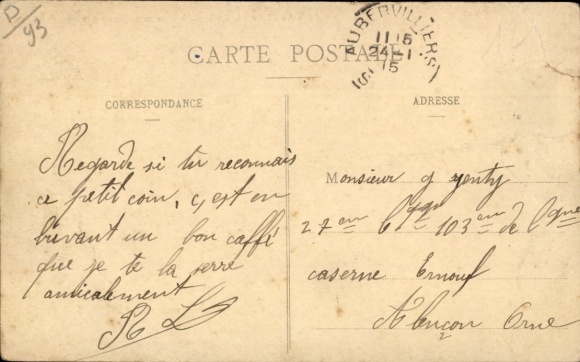 D
93
CARTE POSTALE
AUBERVILLIERS (S
11 15
24 - 1
15
CORRESPONDANCE
Regarde si tu reconnais
ce petit coin, c, est en
buvant un bon caffé
que je te la serre
amicalement
R L
ADRESSE
Monsieur g genty
27 em 103 em de
caserne Ernouf
Alençon Orne